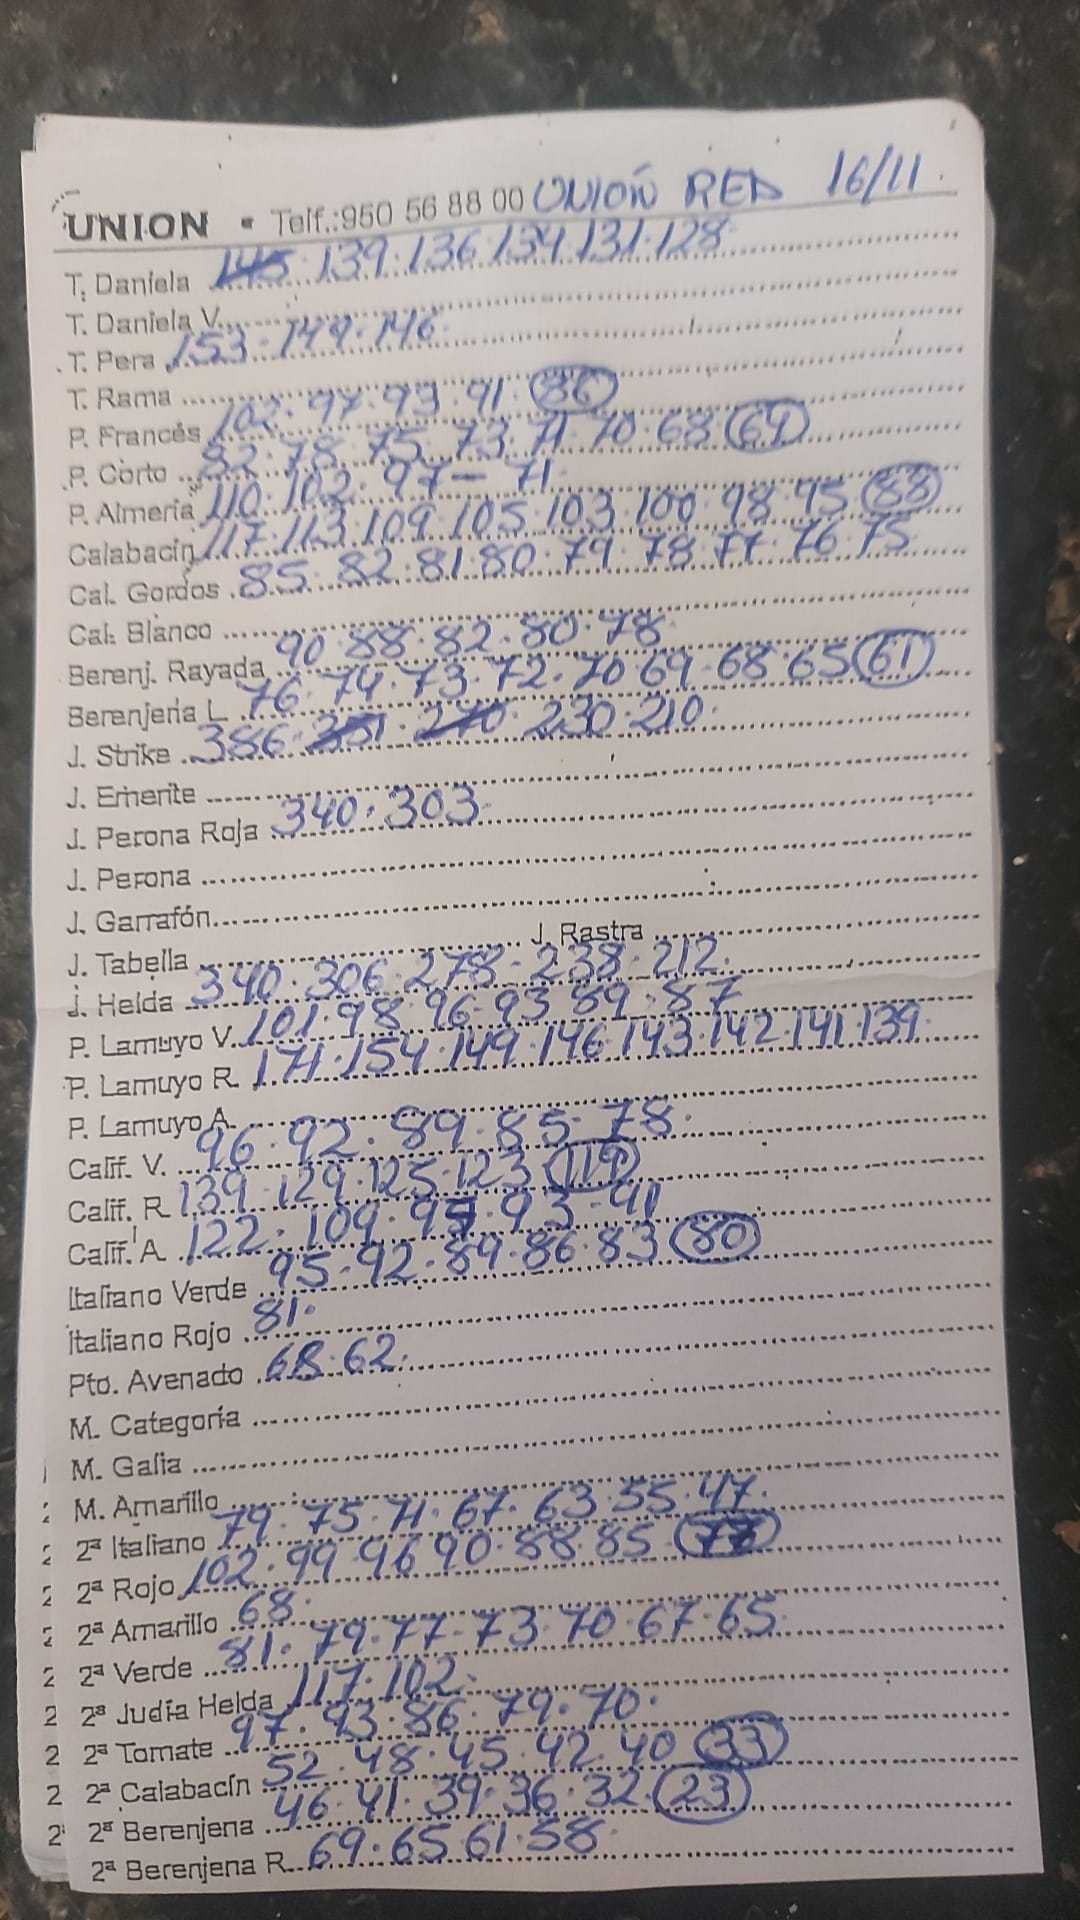 UNION - Telf.:950 56 88 00 UNIOŃ RED 16/11
T. Daniela 145 · 139 · 136 · 134 · 131 · 128
T. Daniela V.
T. Pera 153 · 149 · 146
T. Rama
P. Francés 102 · 97 · 93 · 91 · 86
P. Corto 82 · 78 · 75 · 73 · 71 · 70 · 68 67
P. Almería 110 · 102 · 97 — 71
Calabacín 117 · 113 · 109 · 105 · 103 · 100 · 98 · 95 88
Cal. Gordos 85 · 82 · 81 · 80 · 79 · 78 · 77 · 76 · 75
Cal. Blanco
Berenj. Rayada 90 · 88 · 82 · 80 · 78
Berenjena L 76 · 74 · 73 · 72 · 70 69 · 68 · 65 61
J. Strike 386 · 230 · 210
J. Emerite
J. Perona Roja 340 · 303
J. Perona
J. Garrafón
J. Tabella J. Rastra
J. Helda 340 · 306 · 278 · 238 · 212
P. Lamuyo V. 101 · 98 · 96 · 93 89 · 87
P. Lamuyo R. 171 · 154 · 149 · 146 · 143 · 142 · 141 · 139
P. Lamuyo A.
Calif. V. 96 · 92 · 89 · 85 · 78
Calif. R 139 · 129 · 125 · 123 119
Calif. A 122 · 109 · 93 · 91
Italiano Verde 95 · 92 · 89 · 86 · 83 80
Italiano Rojo 81
Pto. Avenado 68 · 62
M. Categoría
M. Galia
M. Amarillo
2ª Italiano 79 · 75 · 71 · 67 · 63 · 55 · 47
2ª Rojo 102 · 99 · 96 90 · 88 · 85 77
2ª Amarillo 68
2ª Verde 81 · 79 · 77 · 73 · 70 · 67 · 65
2ª Judía Helda 117 · 102
2ª Tomate 97 · 93 · 86 · 79 · 70
2ª Calabacín 52 · 48 · 45 · 42 · 40 33
2ª Berenjena 46 · 41 · 39 · 36 · 32 23
2ª Berenjena R. 69 · 65 61 · 58